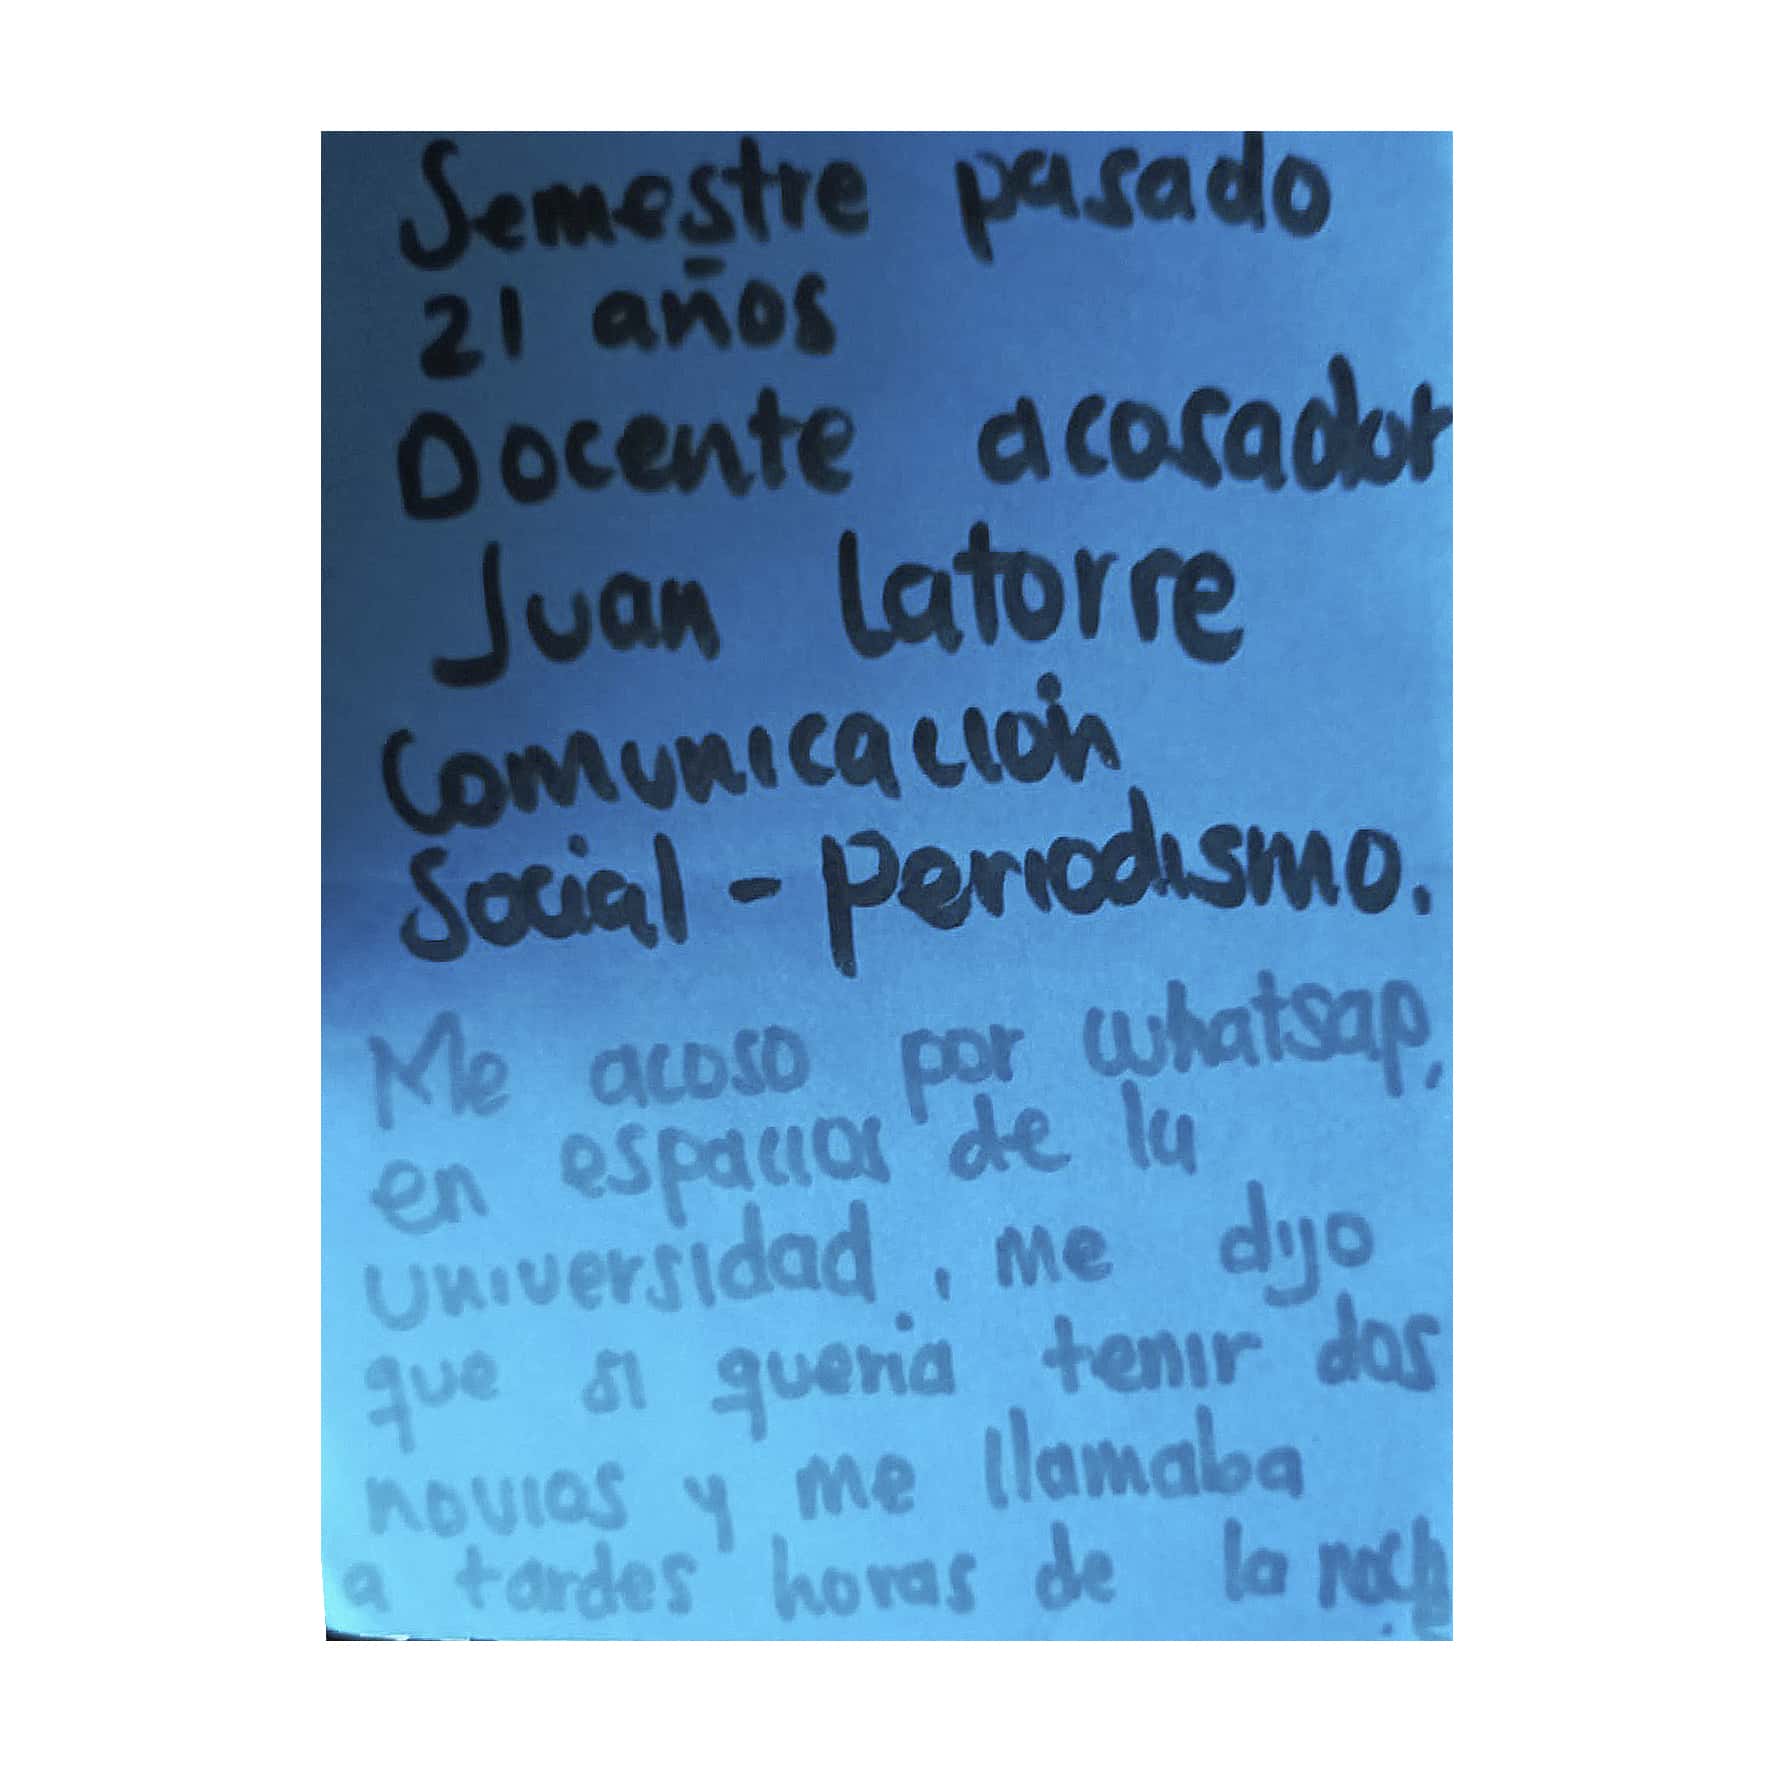 Semestre pasado
21 años
Docente acosador
Juan Latorre
Comunicación
Social - Periodismo.
Me acoso por whatsap,
en espacios de la
universidad, me dijo
que si quería tenir dos
novios y me llamaba
a tardes horas de la noche